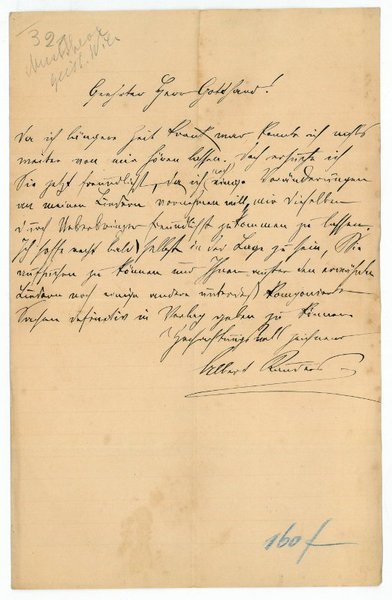 32
Geehrter Herr Gotthard!
Da ich längere Zeit krank war konnte ich nichts
weiter von mir hören lassen. Doch ersuche ich
Sie jetzt freundlichst, da ich noch einige Veränderungen
an meinen Liedern vornehmen will, mir dieselben
durch Ueberbringer freundlichst zukommen zu lassen.
Ich hoffe recht bald selbst in der Lage zu sein, Sie
aufsuchen zu können und Ihnen außer den erwähnten
Liedern noch einige andere unterdeß komponierte
Sachen definitiv in Verlag geben zu können.
Hochachtungsvoll zeichnet
Albert
160f